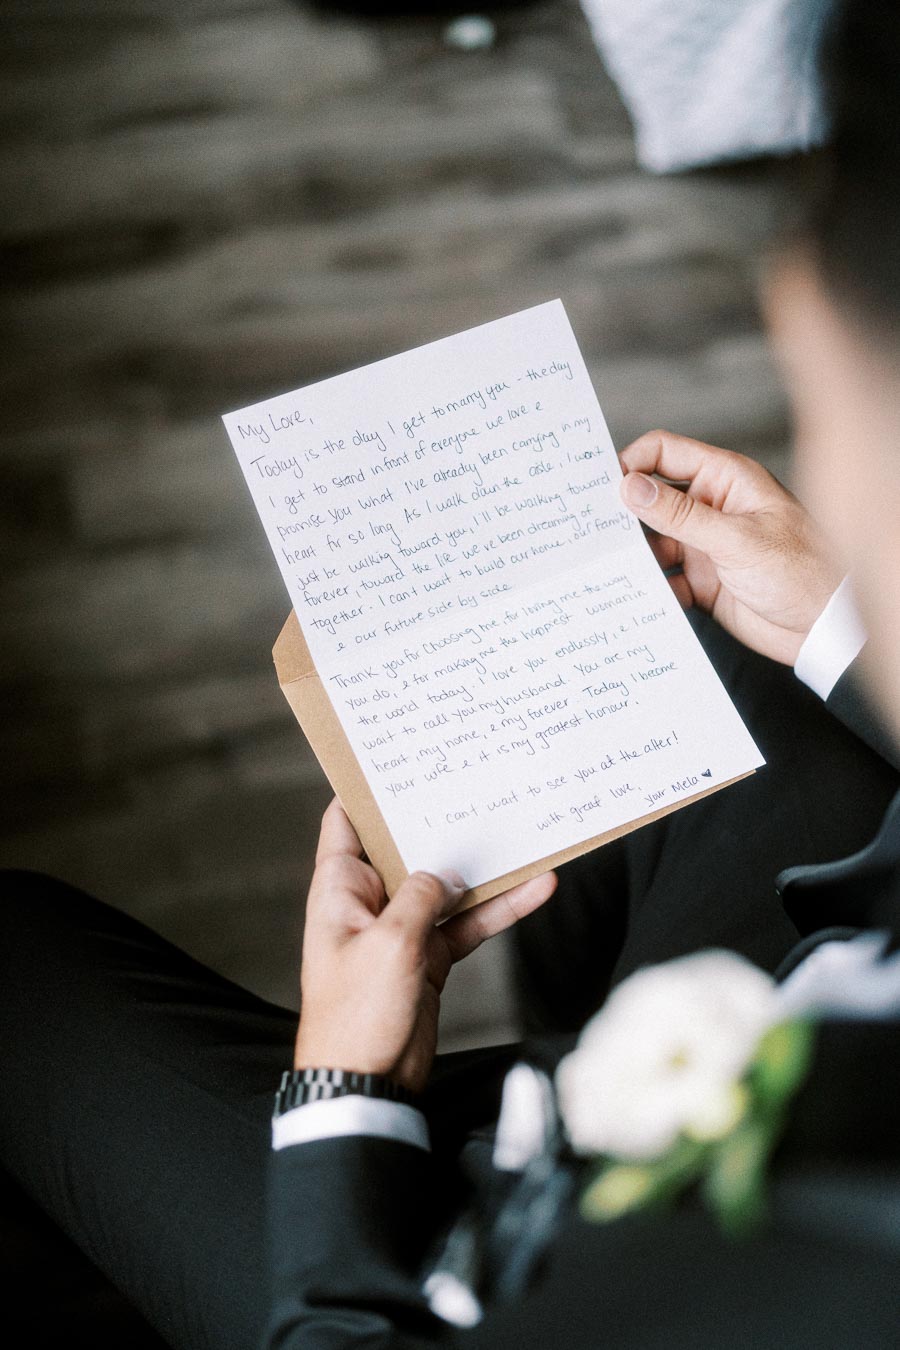 My Love,
Today is the day I get to marry you - the day
I get to stand in front of everyone we love &
promise you what I've already been carrying in my
heart for so long. As I walk down the aisle, I won't
just be walking toward you, I'll be walking toward
forever, toward the life we've been dreaming of
together. I can't wait to build our home, our family,
& our future side by side.
Thank you for choosing me, for loving me the way
you do, & for making me the happiest woman in
the world today. I love you endlessly, & I can't
wait to call you my husband. You are my
heart, my home, & my forever. Today I become
your wife & it is my greatest honour.
I can't wait to see you at the alter!
with great love,
your Mela ♥